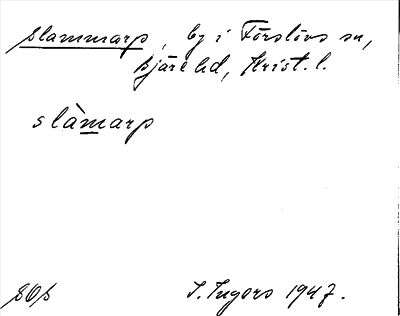 Slammarp, by i Förslövs sn,
Bjäre hd, Krist. l.
slàmarp
SOs
I. Ingers 1947.